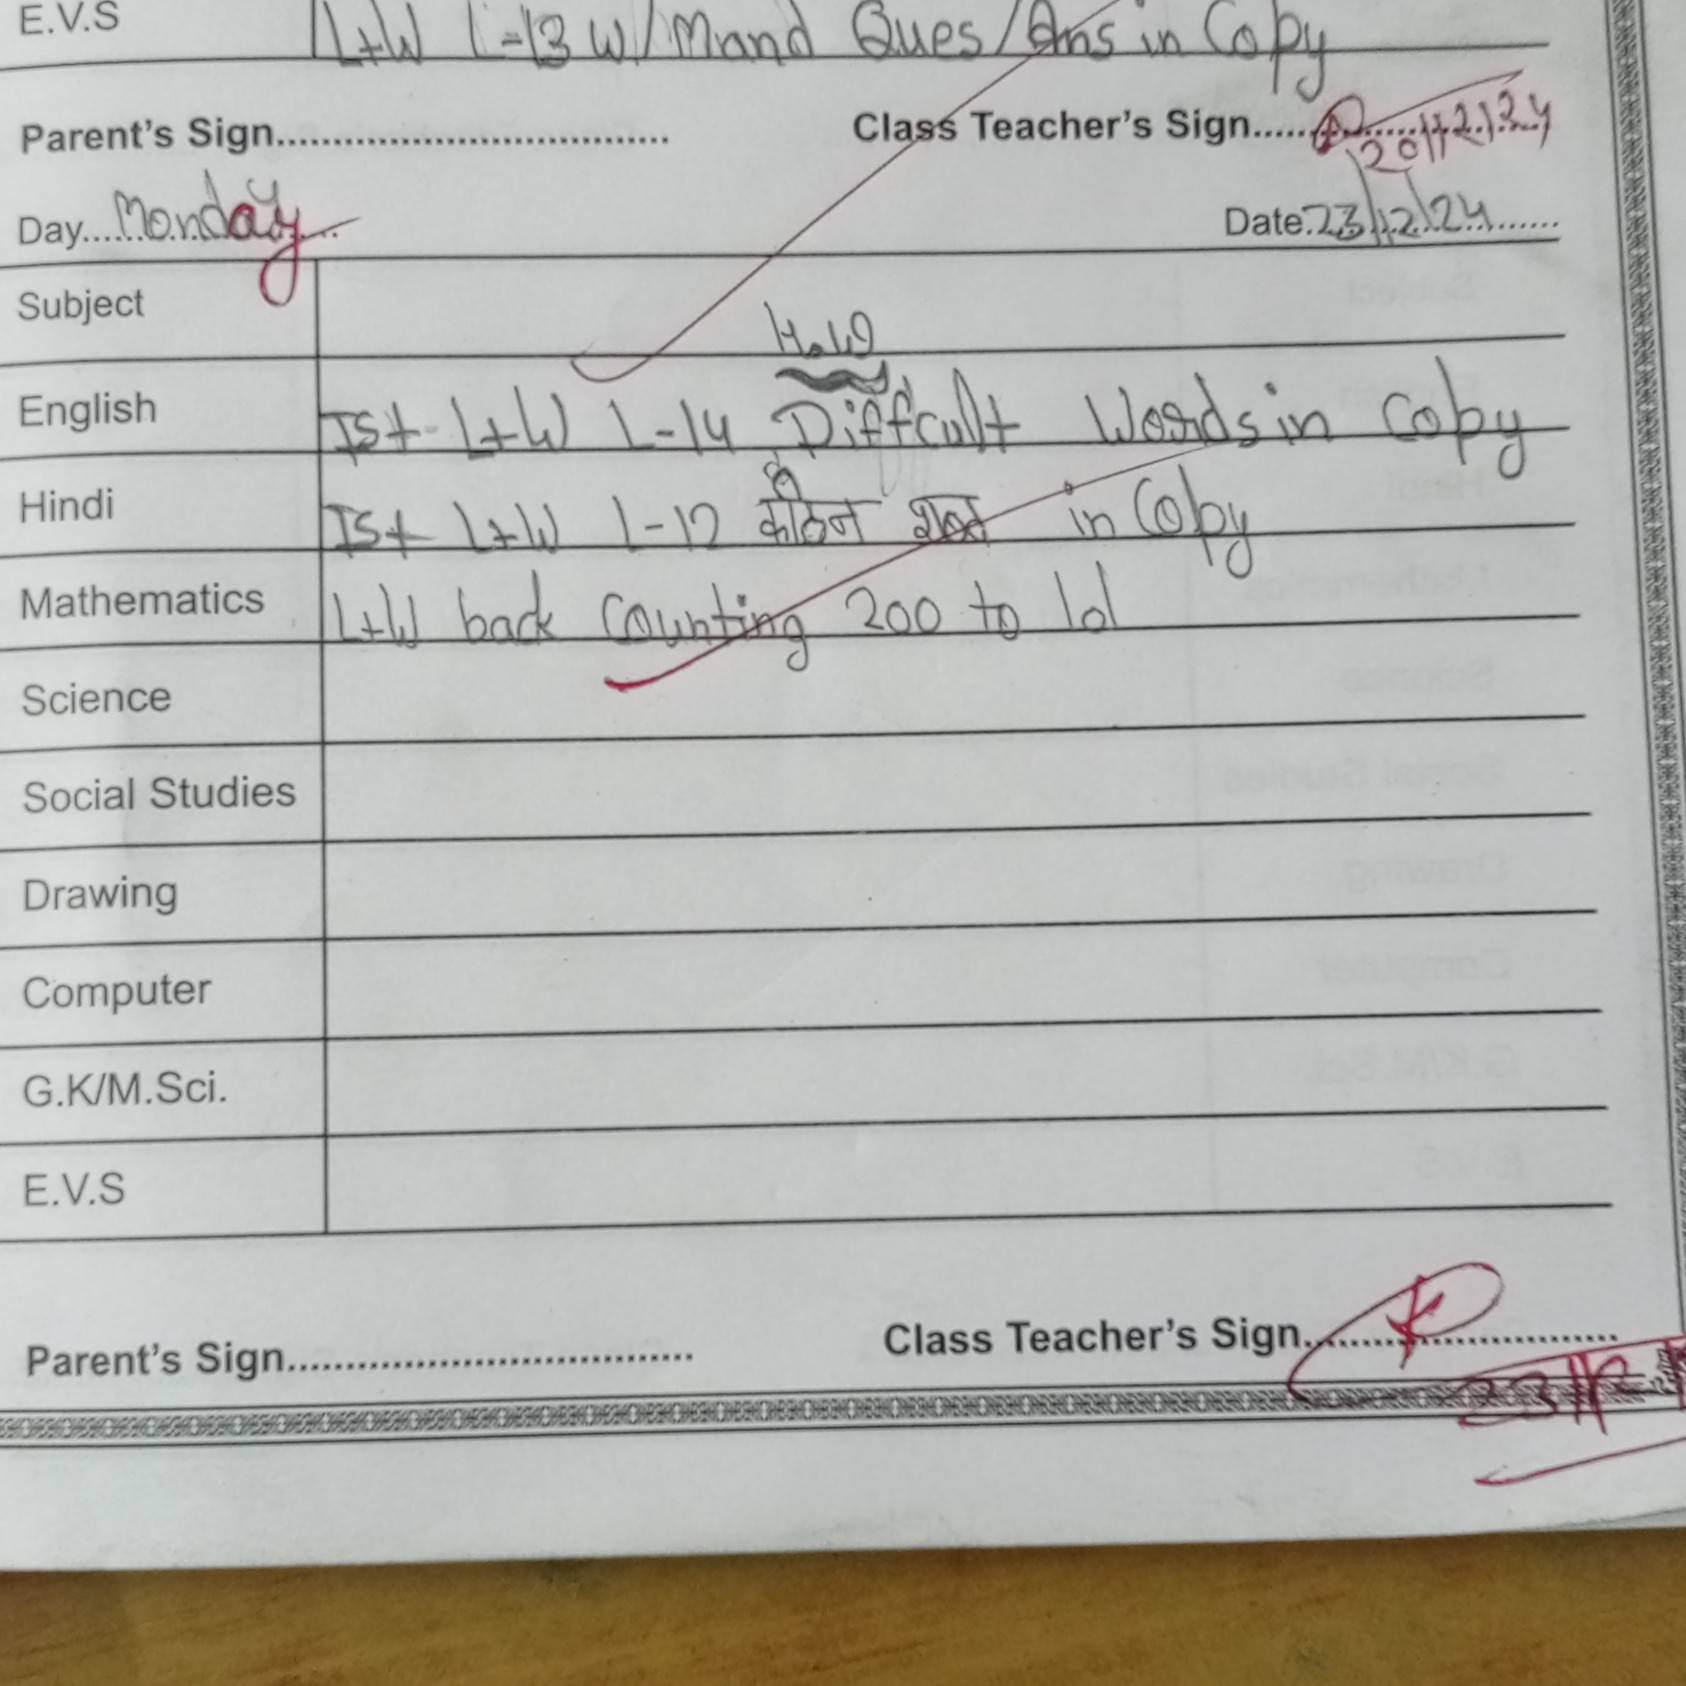 E.V.S L+W L-13 W/M and Ques/Ans in Copy
Parent's Sign.................................... Class Teacher's Sign...... 20/12/24
Day......Monday... Date.23/12/24.......
Subject
H.W
English Ist L+W L-14 Diffcult Words in Copy
Hindi Ist L+W L-12 कठिन शब्द in Copy
Mathematics L+W back Counting 200 to 101
Science
Social Studies
Drawing
Computer
G.K/M.Sci.
E.V.S
Parent's Sign..................................... Class Teacher's Sign.............................